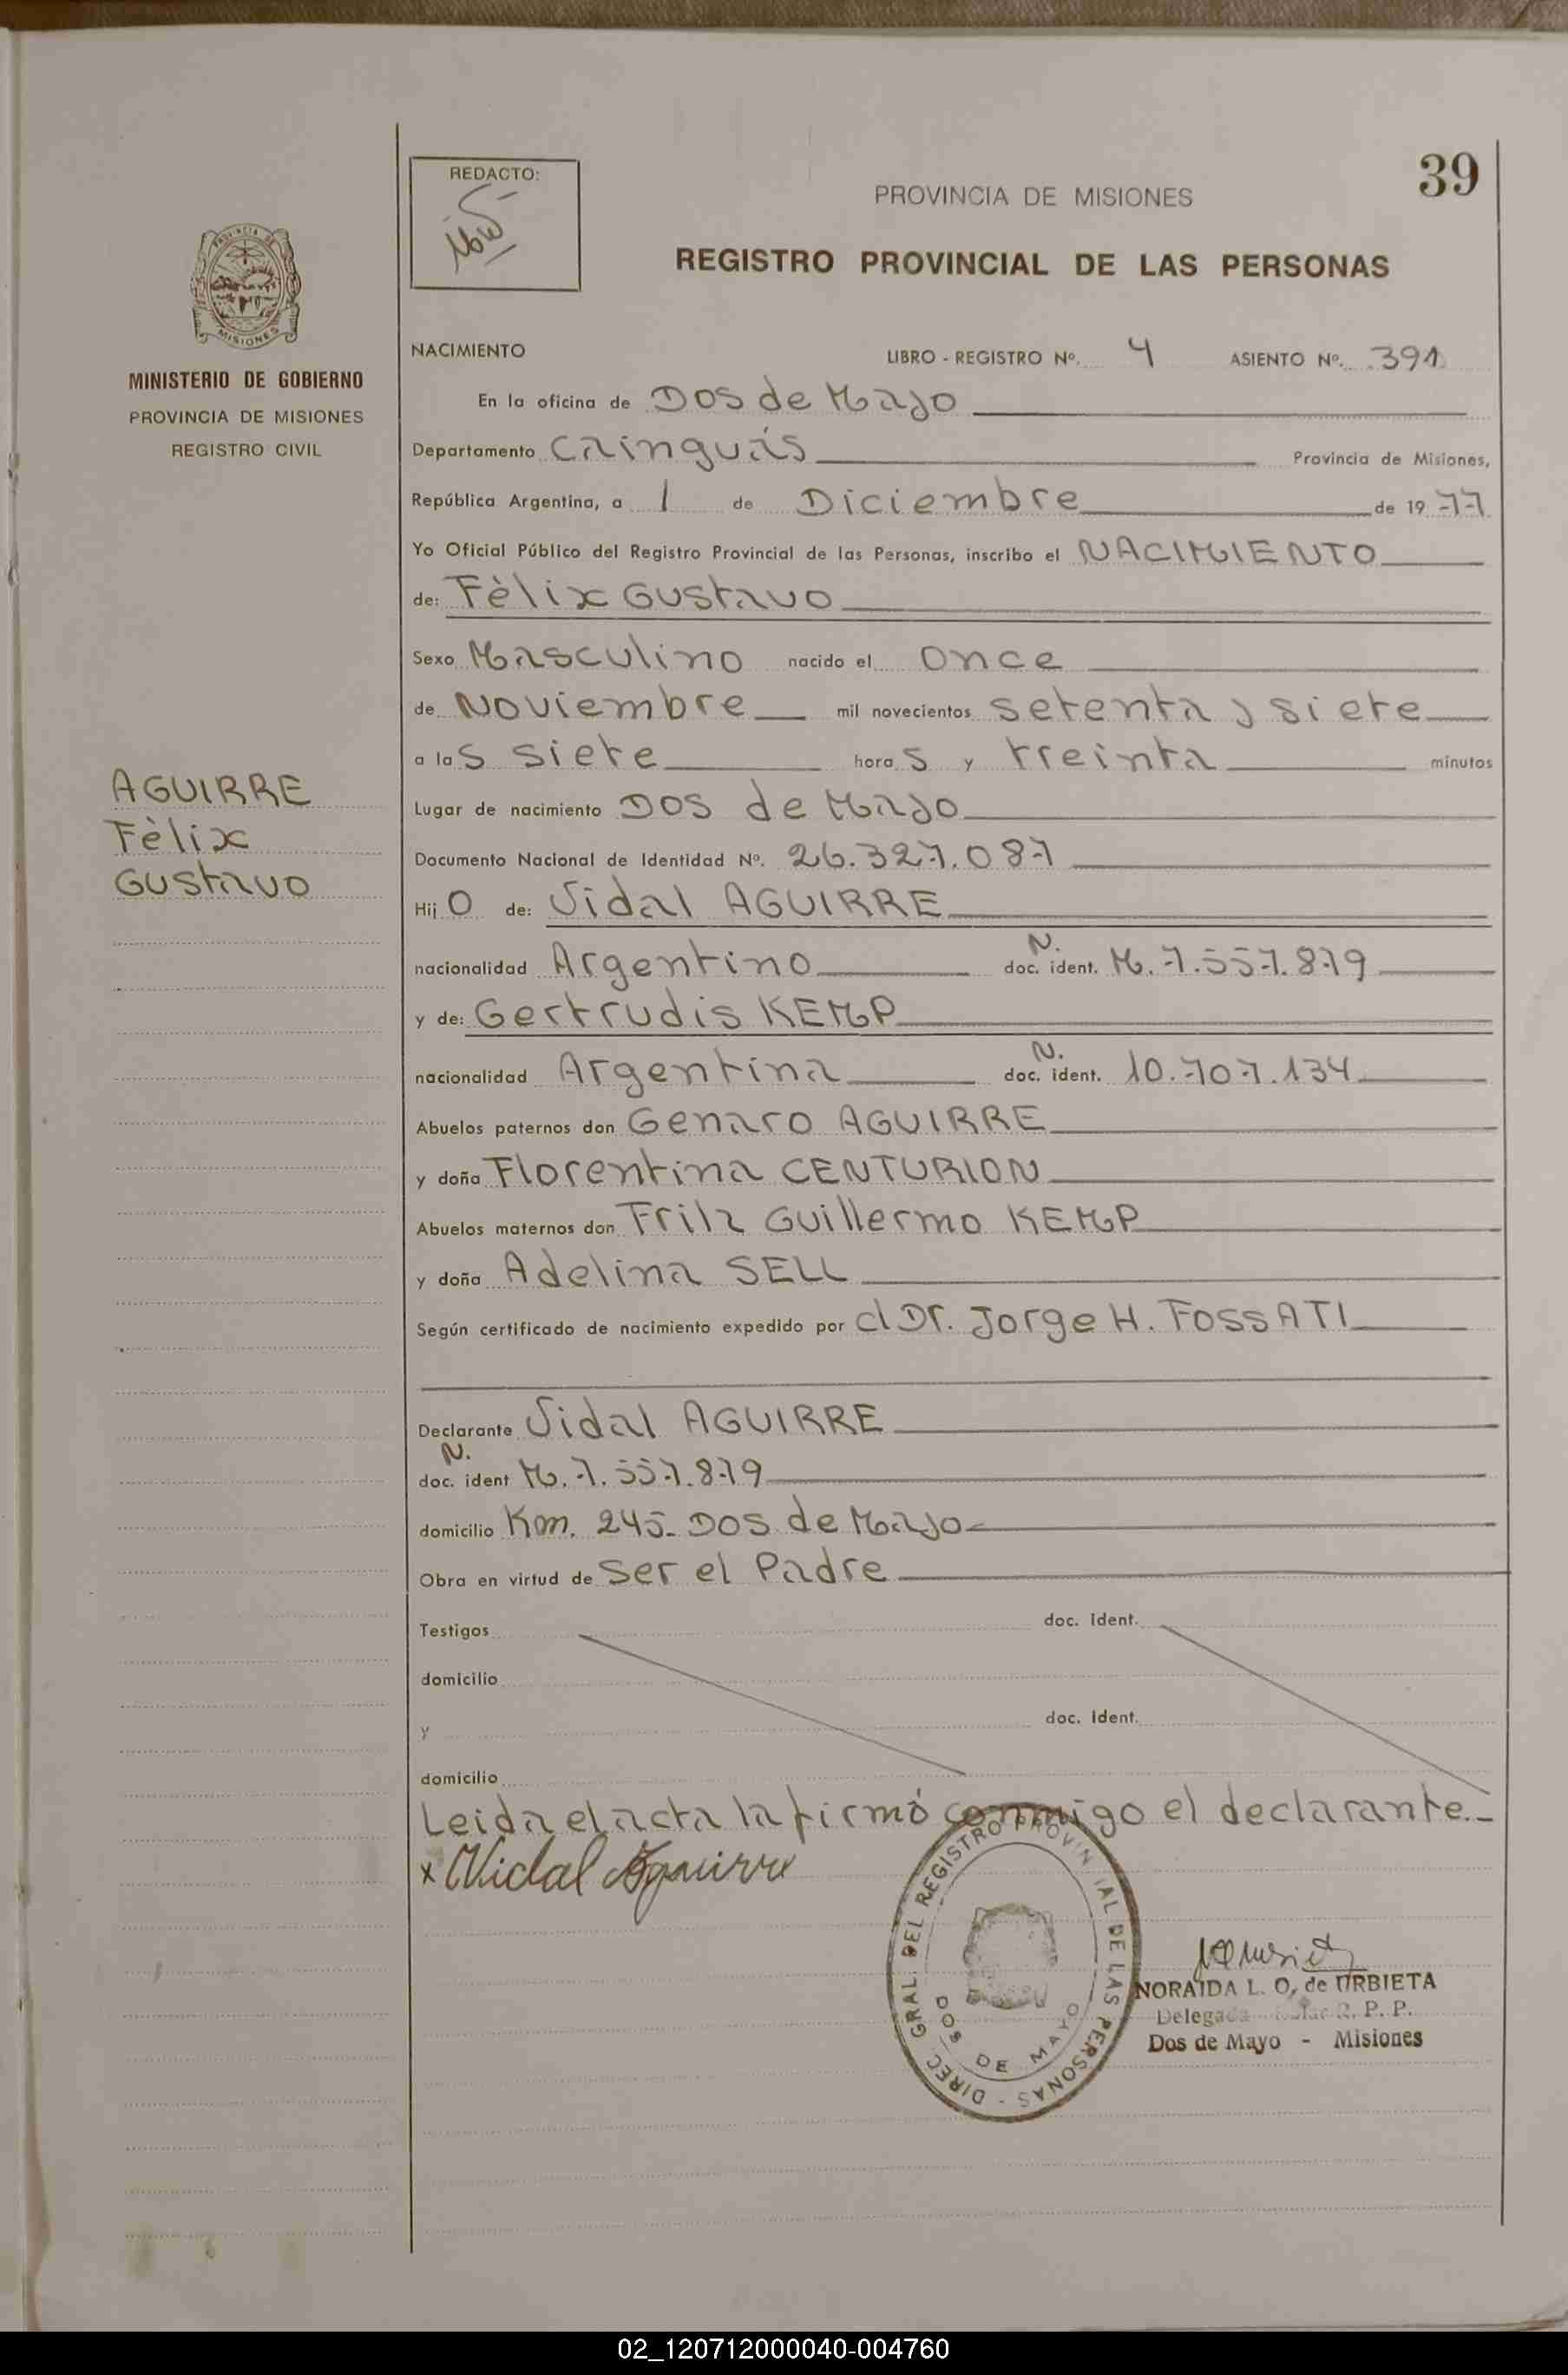 39
REDACTO:
PROVINCIA DE MISIONES
REGISTRO PROVINCIAL DE LAS PERSONAS
PROVINCIA DE
MISIONES
MINISTERIO DE GOBIERNO
PROVINCIA DE MISIONES
REGISTRO CIVIL
NACIMIENTO LIBRO - REGISTRO Nº. 4 ASIENTO Nº. 391
En la oficina de Dos de Mayo
Departamento Cainguás Provincia de Misiones,
República Argentina, a 1 de Diciembre de 1977
Yo Oficial Público del Registro Provincial de las Personas, inscribo el NACIMIENTO
de: Fèlix Gustavo
Sexo Masculino nacido el once
de Noviembre mil novecientos setenta y siete
a las siete horas y treinta minutos
AGUIRRE
Fèlix
Gustavo
Lugar de nacimiento Dos de Mayo
Documento Nacional de Identidad Nº. 26.327.087
Hijo de: Vidal AGUIRRE
nacionalidad Argentino N. doc. ident. M. 7.557.879
y de: Gertrudis KEMP
nacionalidad Argentina N. doc. ident. 10.707.134
Abuelos paternos don Genaro AGUIRRE
y doña Florentina CENTURION
Abuelos maternos don Guillermo KEMP
y doña Adelina SELL
Según certificado de nacimiento expedido por el Dr. Jorge H. FOSSATI
Declarante Vidal AGUIRRE
N.
doc. ident M. 7.557.879
domicilio Km. 245- Dos de Mayo-
Obra en virtud de ser el Padre
Testigos doc. ident.
domicilio
y doc. ident.
domicilio
Leida el acta la firmó conmigo el declarante.-
x Vidal Aguirre
DIREC. GRAL. DEL REGISTRO PROVINCIAL DE LAS PERSONAS -
DOS DE MAYO
NORAIDA L. O. de URBIETA
Delegada R. P. P.
Dos de Mayo - Misiones
02_120712000040-004760